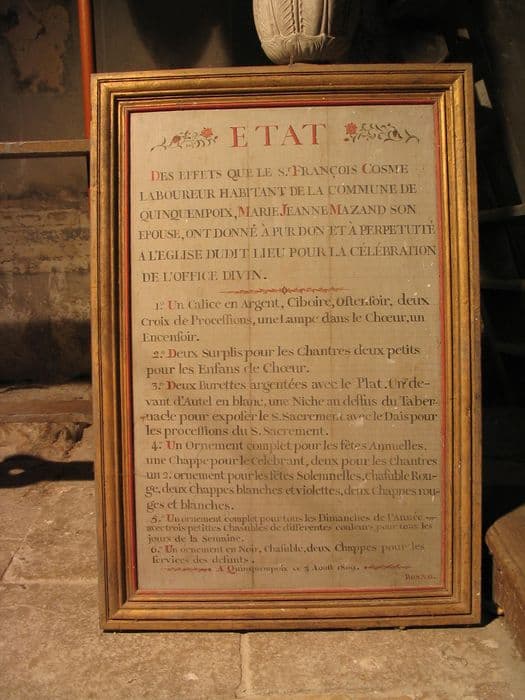 ETAT
DES EFFETS QUE LE S.r FRANÇOIS COSME
LABOUREUR HABITANT DE LA COMMUNE DE
QUINQUEMPOIX, MARIE JEANNE MAZAND SON
EPOUSE, ONT DONNÉ À PUR DON ET À PERPETUITÉ
A L'EGLISE DUDIT LIEU POUR LA CÉLÉBRATION
DE L'OFFICE DIVIN.
1.o Un Calice en Argent, Ciboire, Ostensoir, deux
Croix de Processions, une Lampe dans le Chœur, un
Encensoir.
2.o Deux Surplis pour les Chantres deux petits
pour les Enfans de Chœur.
3.o Deux Burettes argentées avec le Plat. Un de-
vant d'Autel en blanc, une Niche au dessus du Taber-
nacle pour exposer le S. Sacrement avec le Dais pour
les processions du S. Sacrement.
4.o Un Ornement complet pour les fêtes Annuelles,
une Chappe pour le Célébrant, deux pour les Chantres
un 2.e ornement pour les fêtes Solemnelles, Chasuble Rou-
ge, deux Chappes blanches et violettes, deux Chappes rou-
ges et blanches.
5.o Un ornement complet pour tous les Dimanches de l'Année
avec trois petittes Chasubles de differentes couleurs pour tous les
jours de la Semaine.
6.o Un ornement en Noir, chasuble, deux Chappes pour les
services des défunts.
A Quinquempoix ce 3 Aoust 1809.